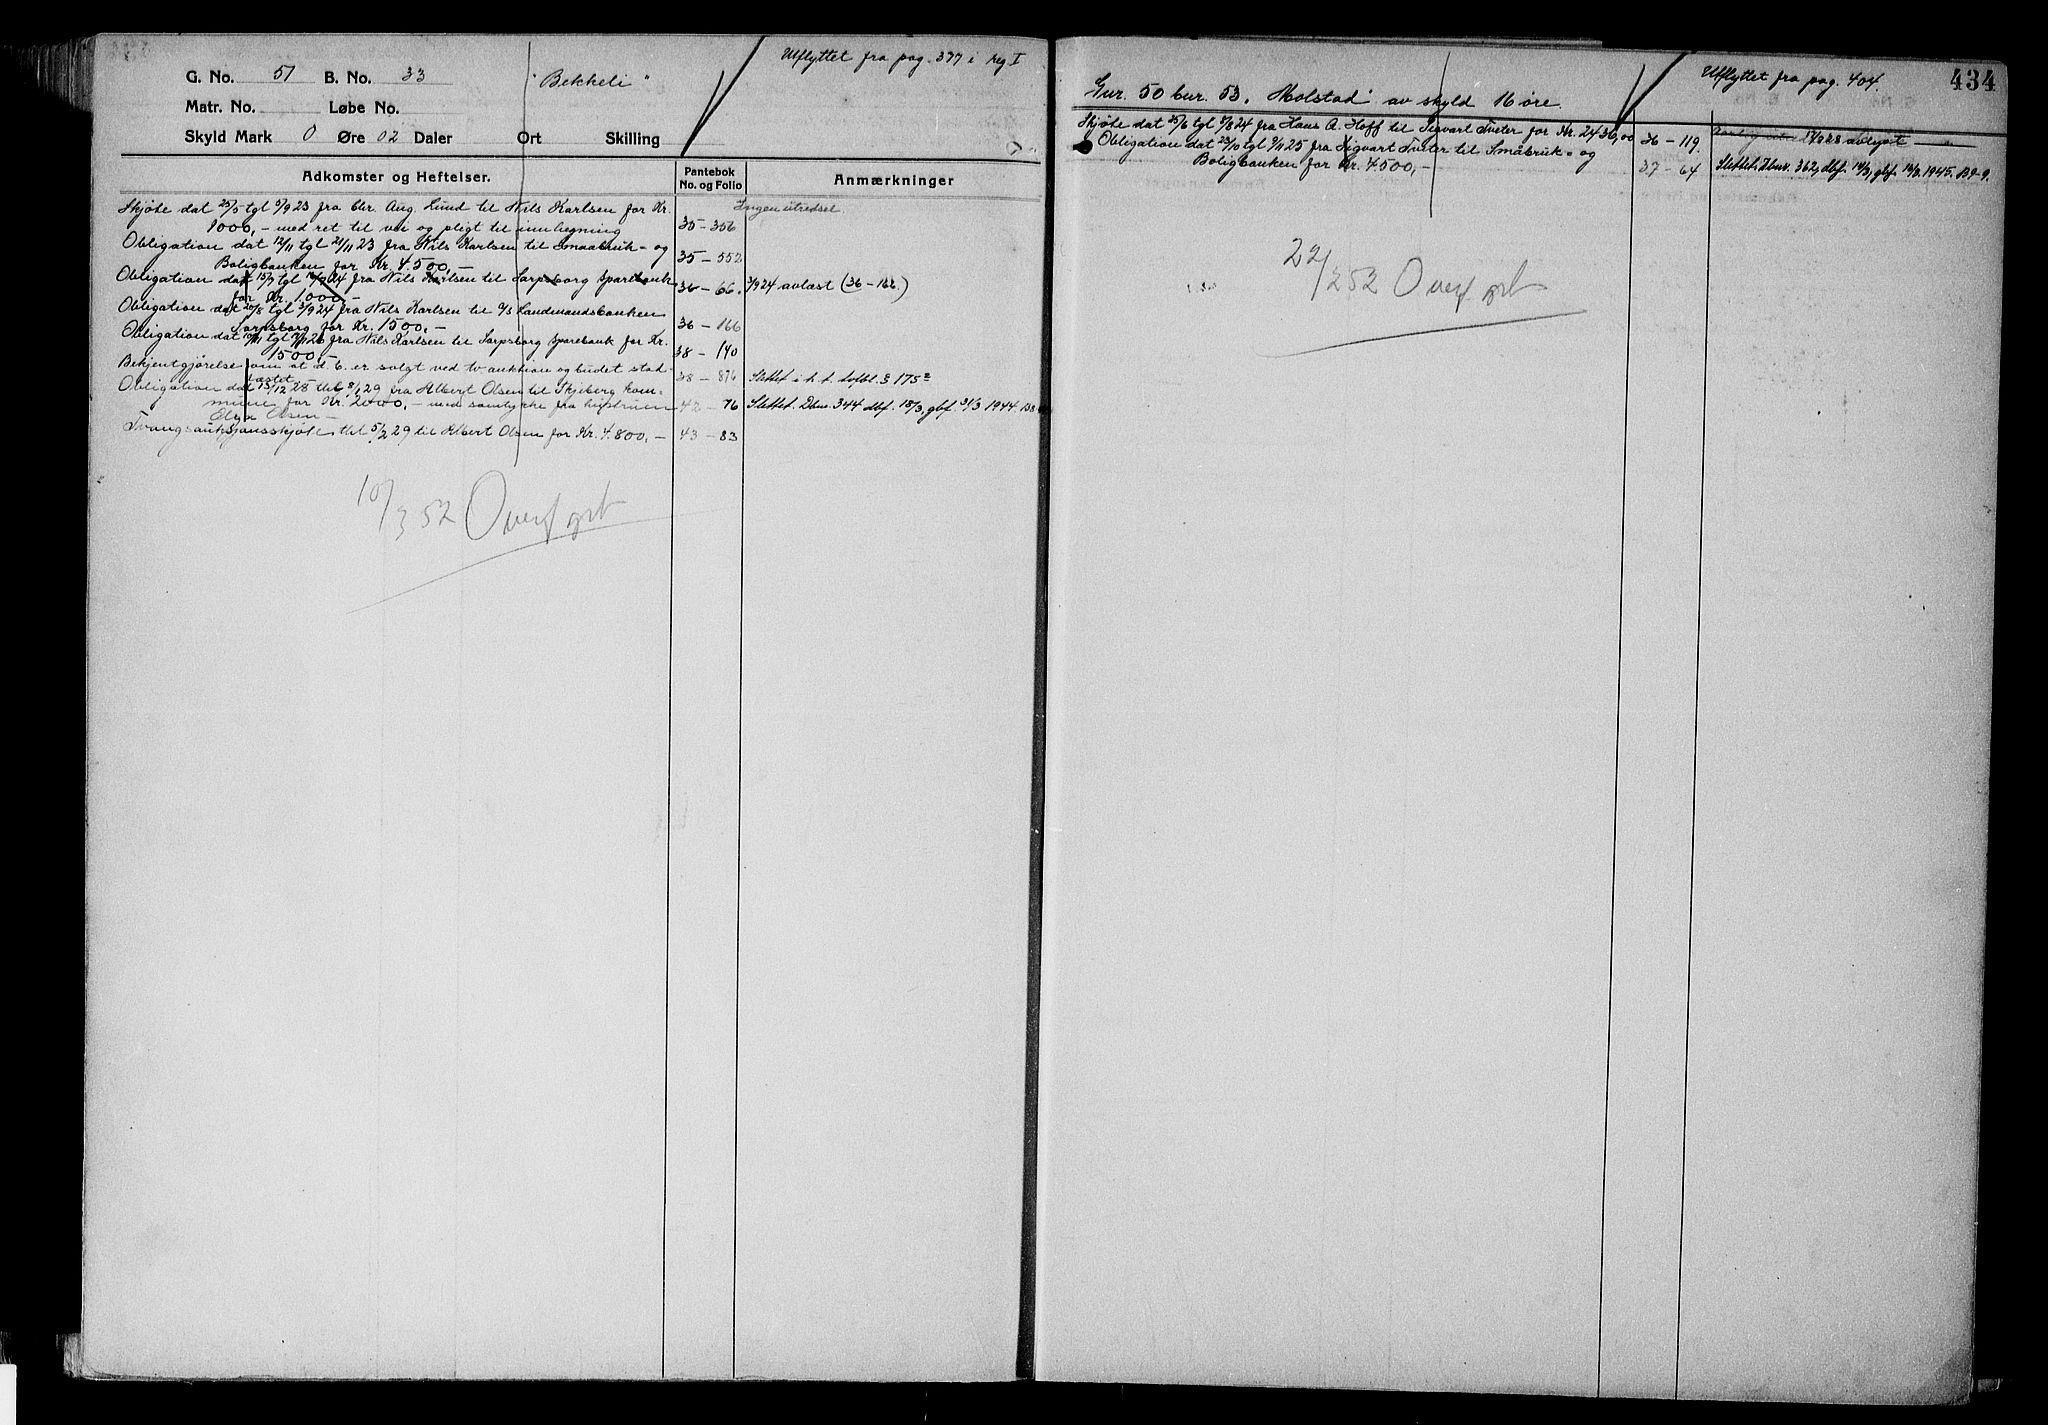 Utflyttet fra pag. 377 i reg I
G. No. 51 B. No. 33 "Bekkeli"
Matr. No. Løbe No.
Skyld Mark 0 Øre 02 Daler Ort Skilling
Adkomster og Heftelser. Pantebok No. og Folio Anmærkninger
Skjøte dat 25/5 tgl 5/9 23 fra Chr. Aug. Lund til Nils Karlsen for Kr. Ingen utredsel.
1000,- med ret til vei og pligt til innhegning 35-356
Obligation dat 12/11 tgl 21/11 23 fra Nils Karlsen til Smaabruk- og
Boligbanken for Kr. 4.500,- 35-552
Obligation dat 15/7 tgl 24 fra Nils Karlsen til Sarpsborg Sparebank 36-66. 3/9 24 avlæst (36-182.)
for Kr. 1000,-
Obligation dat 20/8 tgl 3/9 24 fra Nils Karlsen til A/S Landmandsbanken
Sarpsborg for Kr. 1500,- 36-166
Obligation dat tgl 26 fra Nils Karlsen til Sarpsborg Sparebank for Kr.
1500,- 38-140
Bekjentgjørelse om at d. b. er solgt ved tv. auktion og budet stad- 38-876 Slettet i h. t. tvfbl. § 175²
fæstet
Obligation dat 15/12 28 tbl. 8/1 29 fra Albert Olsen til Skjeberg kom-
mune for Kr. 2000,- med samtykke fra hustruen 42-76 Slettet. Dbnr. 344 dbf. 18/3, gbf. 31/3 1944.
Elga Olsen -
Tvangsauksjonsskjøte tbl 5/2 29 til Albert Olsen for Kr. 4.800,- 43-83
10/3 52 Overført
434
Utflyttet fra pag. 404.
Gnr. 50 bnr. 53. Molstad av skyld 16 øre.
Skjøte dat 25/6 tgl 5/8 24 fra Hans A. Hoff til Sigvart Tveter for Kr. 2436,00 36-119 28 avlyst
Obligation dat 23/10 tgl 9/11 25 fra Sigvart Tveter til Småbruk- og
Boligbanken for Kr. 4.500,- 37-64 Slettet. Dbnr. 362, dbf. 14/3, gbf. 1945. B9-9.
22/2 52 Overført